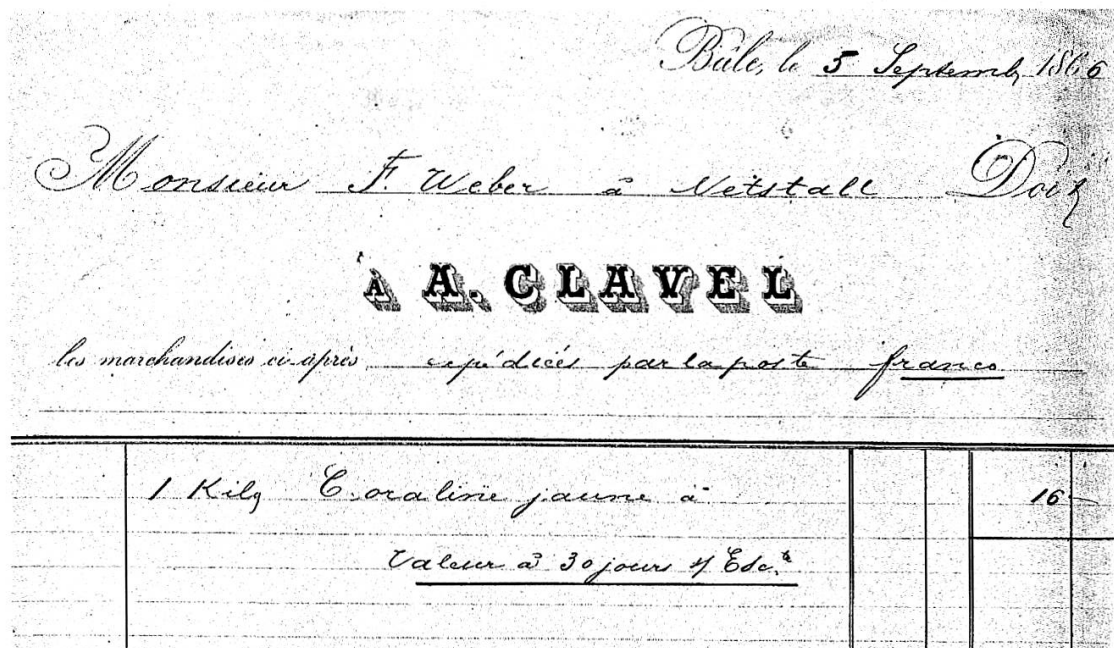 Bâle, le 5 Septemb, 1866
Monsieur F. Weber à Netstall Doit
À A. CLAVEL
les marchandises ci-après expédiées par la poste franco
1 Kilg Coraline jaune à 16 —
Valeur à 30 jours s/ Esc.te